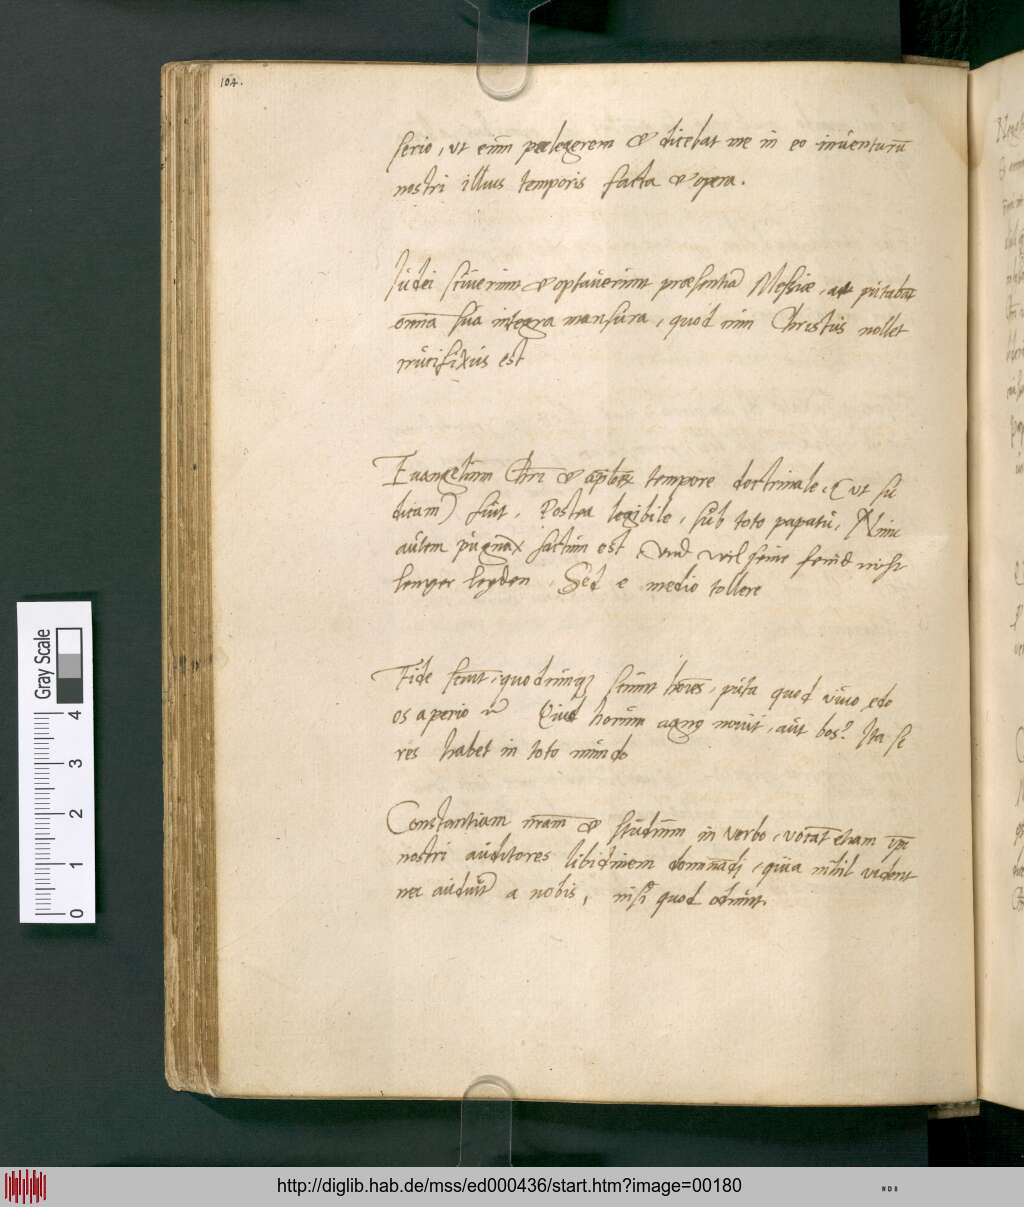 104.
serio, ut eum perlegerem & dicebat me in eo inventurū
nostri illius temporis facta & opera.
Judei sciverunt & optaverunt præsentiā Messiæ, at putabāt
omnia sua integra mansura, quod cum Christus nollet
crucifixus est
Evangelium Chri & aplor̄ tempore doctrinale, (ut sic
dicam) fuit, Postea legibile, sub toto papatu, Nunc
autem pugnax factum est, Und wil seine feind nicht
lenger leyden, Sed e medio tollere
Fide sciūt, quodcunqȝ sciunt hoīes, puta quod vivo, edo
os aperio
Quid horum novit, aut bos? Ita se
res habet in toto mundo
Constantiam nr̄am & studium in verbo, vocāt etiam ip̄i
nostri auditores libidinem dominādi, quia nihil vident
nec audiūt a nobis, nisi quod oderunt.
Gray Scale
4
3
2
1
0
http://diglib.hab.de/mss/ed000436/start.htm?image=00180